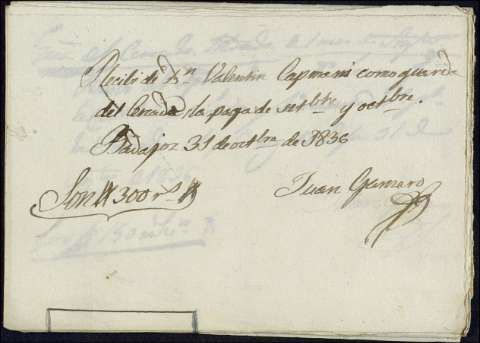 Recibi de Dn. Valentin Capmani como guarda
del Cercado, la paga de setbre. y octbre.
Badajoz 31 de octbre de 1836
Son # 300 rs. #
Juan Gamaro